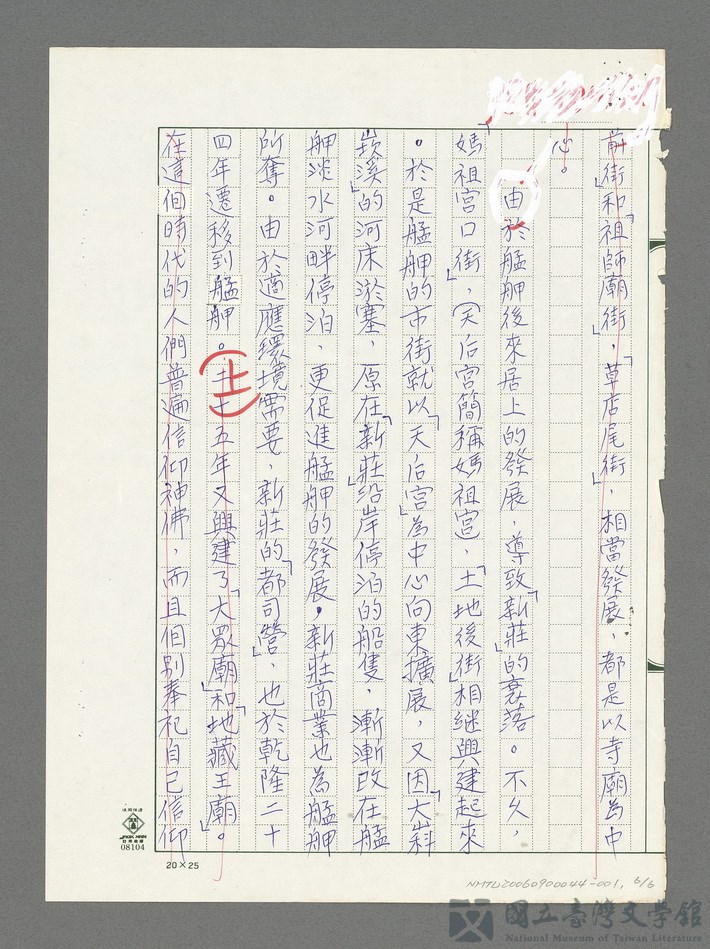 前街」和「祖師廟街」，「草店尾街」，相當發展，都是以寺廟為中
心。
由於艋舺後來居上的發展，導致「新莊」的衰落。不久，「
媽祖宮口街」，（天后宮簡稱媽祖宮），「土地後街」相繼興建起來
。於是艋舺的市街就以「天后宮」為中心向東擴展，又因「大嵙
崁溪」的河床淤塞，原在「新莊」沿岸停泊的船隻，漸漸改在艋
舺淡水河畔停泊，更促進艋舺的發展，新莊商業也為艋舺
所奪。由於適應環境需要，新莊的「都司營」，也於乾隆二十
四年遷移到艋舺。二十五年又興建了「大眾廟」和「地藏王廟」。
上
在這個時代的人們普遍信仰神佛，而且個別奉祀自己信仰
JACK MAN
08104
20×25
NMTL20060900044-001, 6/6
國立臺灣文學館
National Museum of Taiwan Literature